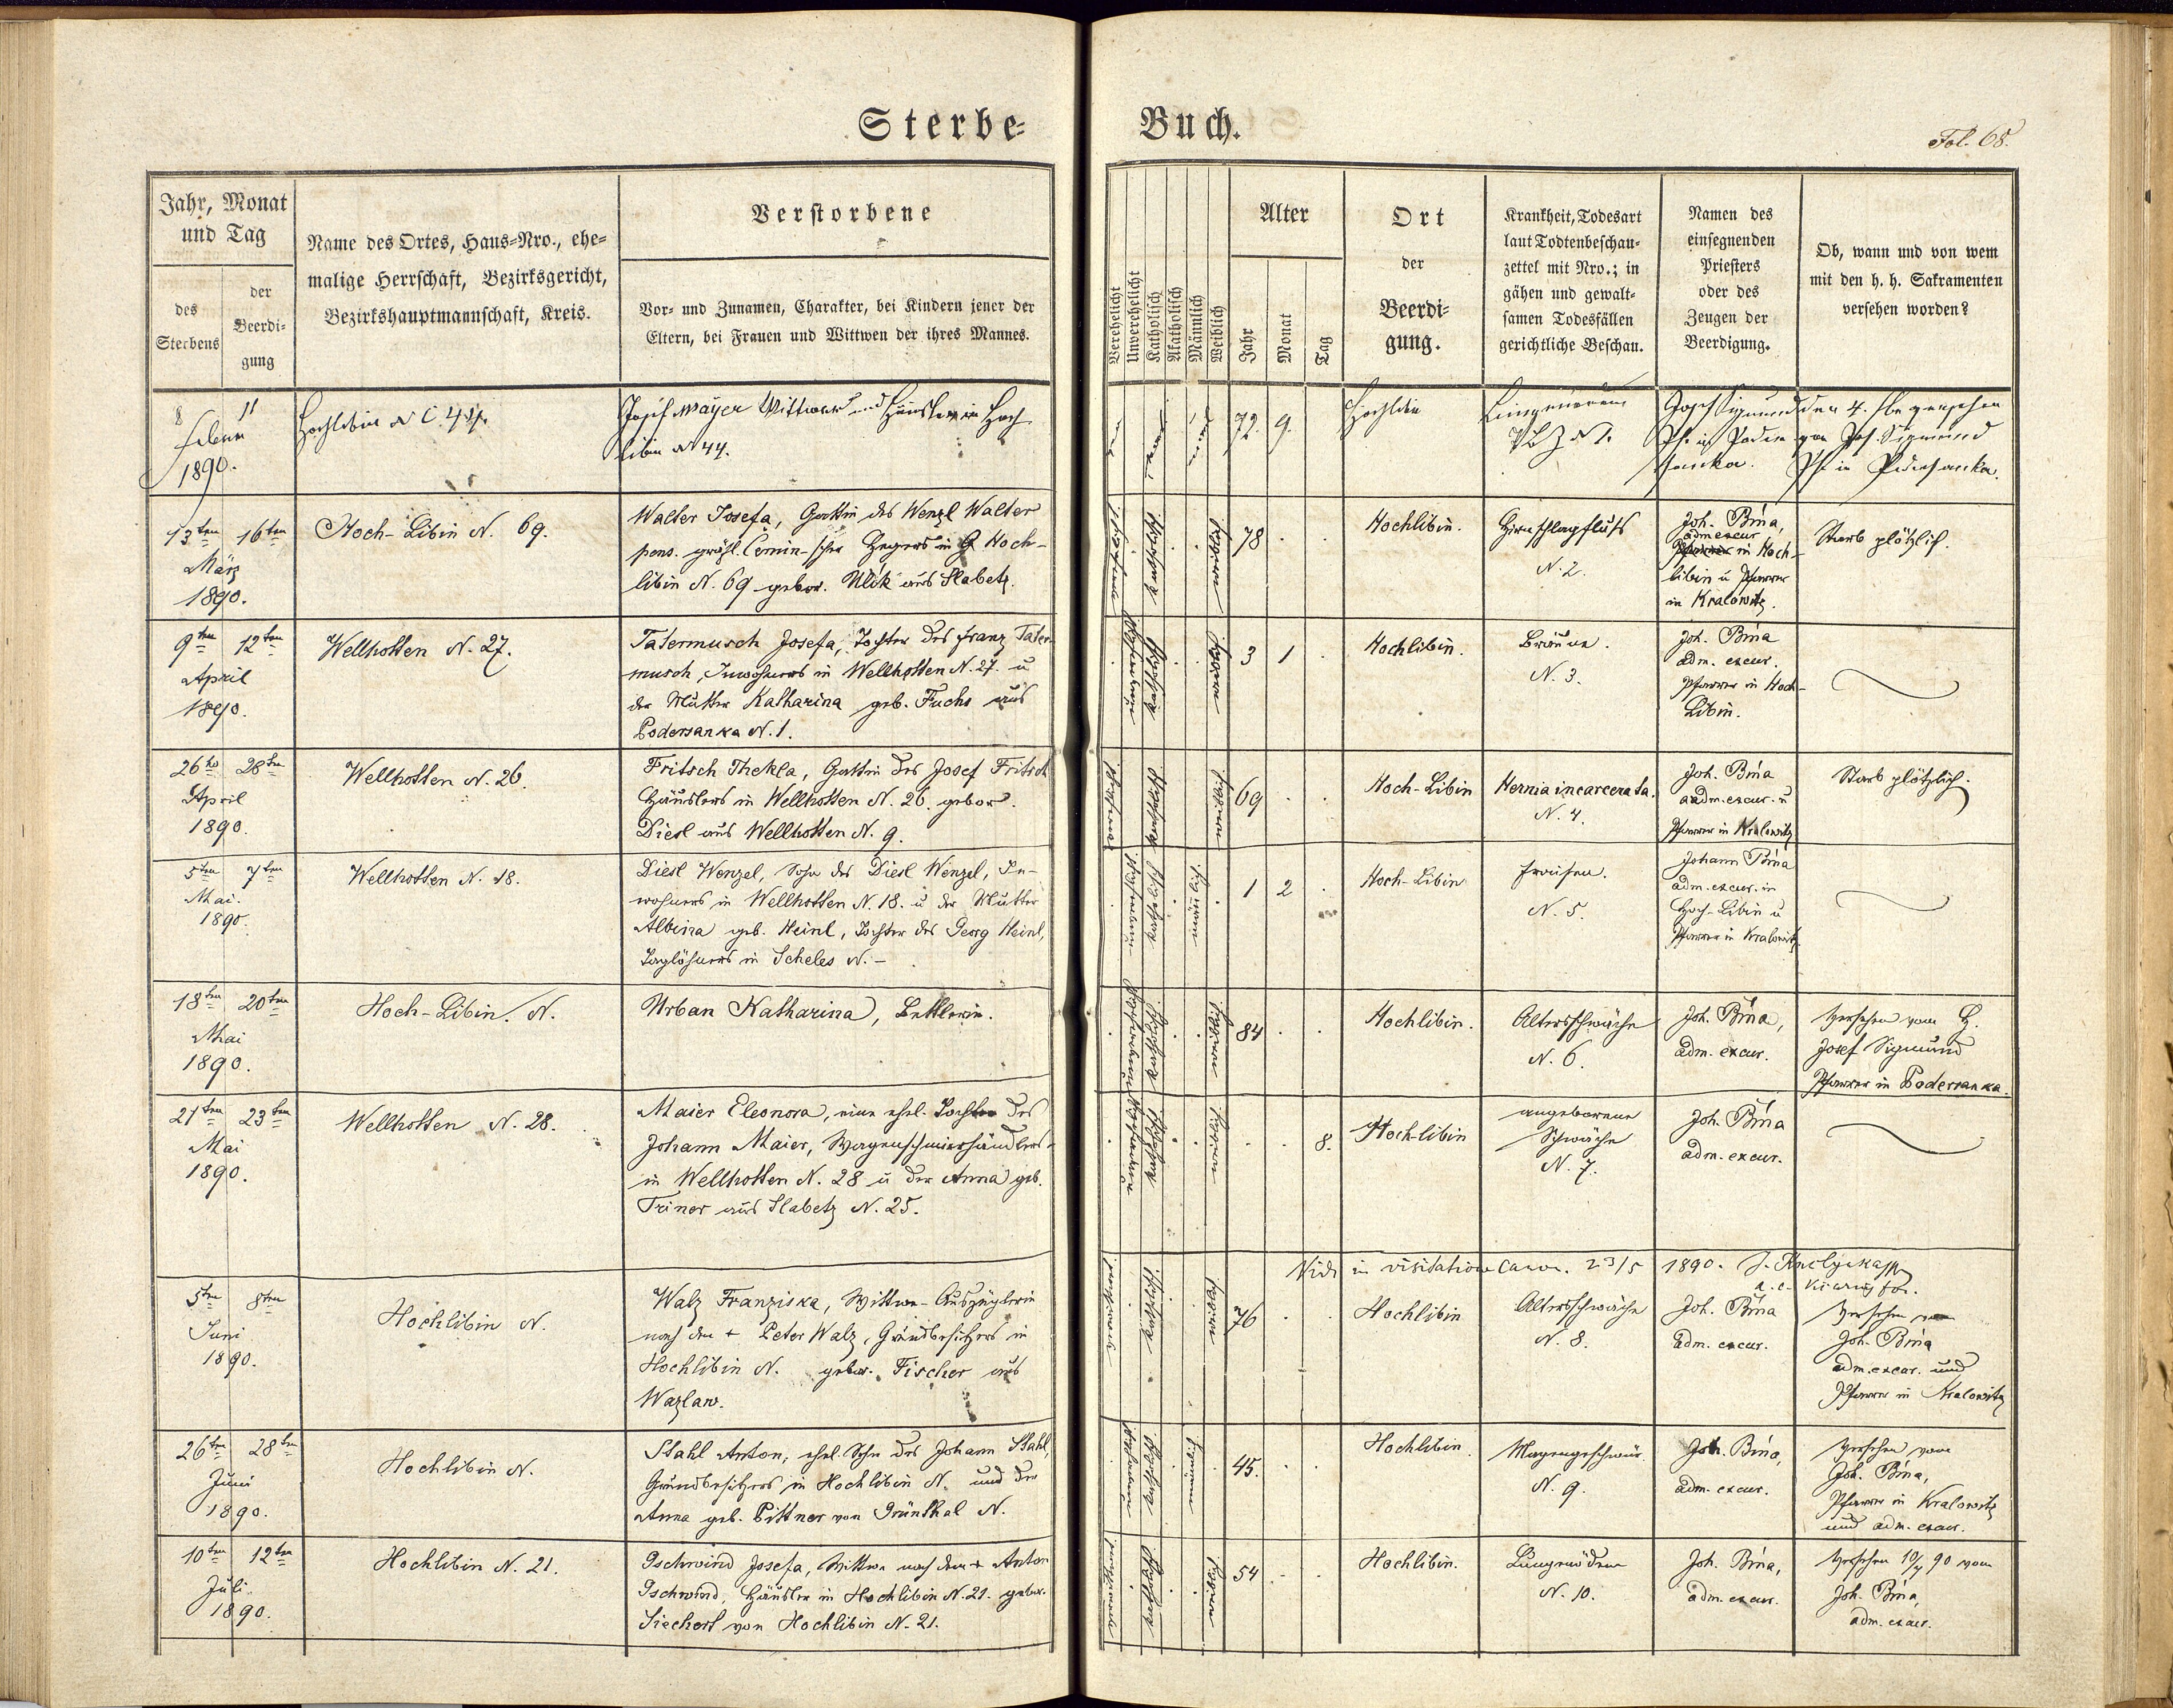 Sterbe-
Buch.
Fol. 68.
Jahr, Monat
und Tag
des
Sterbens
der
Beerdi-
gung
Name des Ortes, Haus-Nro., ehe-
malige Herrschaft, Bezirksgericht,
Bezirkshauptmannschaft, Kreis.
Verstorbene
Vor- und Zunamen, Charakter, bei Kindern jener der
Eltern, bei Frauen und Wittwen der ihres Mannes.
Verehelicht
Unverehelicht
Katholisch
Akatholisch
Männlich
Weiblich
Alter
Jahr
Monat
Tag
Ort
der
Beerdi-
gung.
Krankheit, Todesart
laut Todtenbeschau-
zettel mit Nro.; in
gähen und gewalt-
samen Todesfällen
gerichtliche Beschau.
Namen des
einsegnenden
Priesters
oder des
Zeugen der
Beerdigung.
Ob, wann und von wem
mit den h. h. Sakramenten
versehen worden?
8 11
1890.
Hochlibin N C. 44.
Josef Mayer Wittwer und Häusler in Hoch
libin N 44.
72. 9.
Hochlibin
Josef Sigmund
Pf. in Poder
sanka.
den 4. versehen
von Jos. Sigmund
Pf. in Podersanka.
13ten 16ten
März
1890.
Hoch-Libin N. 69.
Walter Josefa, Gattin des Wenzl Walter
pens. gräfl. Cernin-scher Hegers in Hoch-
libin N. 69 gebor. Ulčk aus Slabetz.
78
Hochlibin.
Hirnschlagfluß
N. 2.
Joh. Bina,
adm excur
in Hoch-
libin u Pfarrer
in Kralowitz.
Starb plötzlich.
9ten 12ten
April
1890.
Wellhotten N. 27.
Tatermusch Josefa, Tochter des Franz Tater-
musch, Inwohners in Wellhotten N. 27. u
der Mutter Katharina geb. Fuchs aus
Podersanka N. 1.
3 1
Hochlibin.
Bräune.
N. 3.
Joh. Bina
adm. excur.
Pfarrer in Hoch-
Libin.
26ten 28ten
April
1890.
Wellhotten N. 26.
Fritsch Thekla, Gattin des Josef Fritsch
Häuslers in Wellhotten N. 26. gebor.
Diesl aus Wellhotten N. 9.
69
Hoch-Libin
Hernia incarcerata.
N. 4.
Joh. Bina
adm. excur. u
Pfarrer in Kralowitz
Starb plötzlich.
5ten 7ten
Mai.
1890.
Wellhotten N. 18.
Diesl Wenzel, Sohn des Diesl Wenzel, In-
wohners in Wellhotten N. 18. u der Mutter
Albina geb. Heinl, Tochter des Georg Heinl,
Taglöhners in Scheles N. –
1 2
Hoch-Libin
Fraisen.
N. 5.
Johann Bina
adm. excur. in
Hoch-Libin u
Pfarrer in Kralowitz
18ten 20ten
Mai
1890.
Hoch-Libin. N.
Urban Katharina, Bettlerin.
84
Hochlibin.
Altersschwäche
N. 6.
Joh. Bina,
adm. excur.
Versehen vom H.
Josef Sigmund
Pfarrer in Podersanka.
21ten 23ten
Mai
1890.
Wellhotten N. 28.
Maier Eleonora, eine ehel. Tochter des
Johann Maier, Wagenschmierhändlers
in Wellhotten N. 28 u der Anna geb.
Triner aus Slabetz N. 25.
8.
Hoch-libin
angeborene
Schwäche
N. 7.
Joh. Bina
adm. excur.
Vidi in visitatione canon. 23/5 1890.
5ten 8ten
Juni
1890.
Hochlibin N.
Walz Franziska, Wittwe-Auszüglerin
nach dem + Peter Walz, Grundbesitzers in
Hochlibin N. gebor. Fischer aus
Wazlaw.
76
Hochlibin
Altersschwäche
N. 8.
Joh. Bina
adm. excur.
Versehen vom
Joh. Bina
adm. excur. und
Pfarrer in Kralowitz
26ten 28ten
Juni
1890.
Hochlibin N.
Stahl Anton, ehel. Sohn des Johann Stahl,
Grundbesitzers in Hochlibin N. und der
Anna geb. Pittner von Grünthal N.
45.
Hochlibin.
Magengeschwür
N. 9.
Joh. Bina,
adm. excur.
Versehen vom
Joh. Bina,
Pfarrer in Kralowitz
und adm. excur.
10ten 12ten
Juli
1890.
Hochlibin N. 21.
Gschwind Josefa, Wittwe nach dem + Anton
Gschwind, Häusler in Hochlibin N. 21. gebor.
Siechert von Hochlibin N. 21.
54
Hochlibin.
Lungenödem
N. 10.
Joh. Bina,
adm. excur.
Versehen 10/7 90 vom
Joh. Bina,
adm. excur.